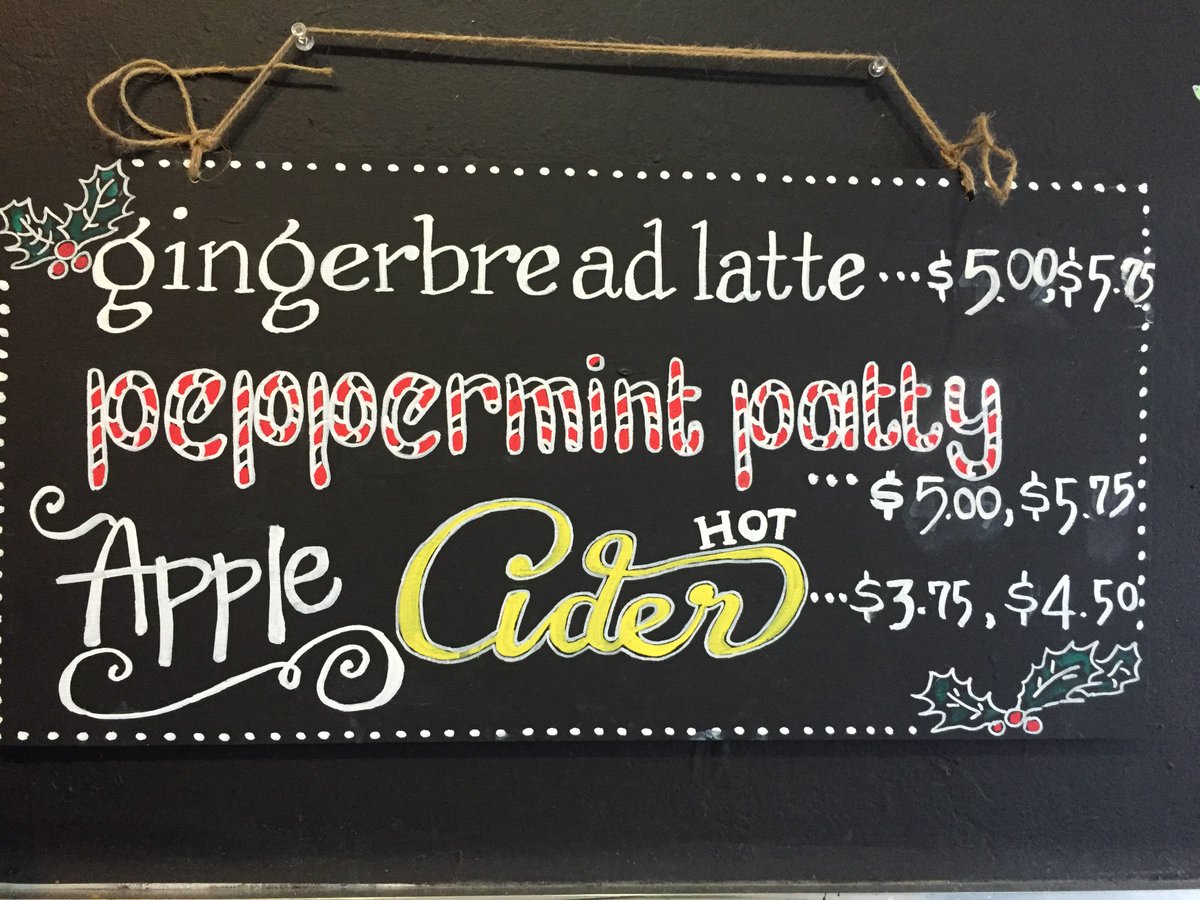 gingerbread latte ...$5.00,$5.75
peppermint patty
...$5.00,$5.75
Apple Cider HOT ...$3.75, $4.50